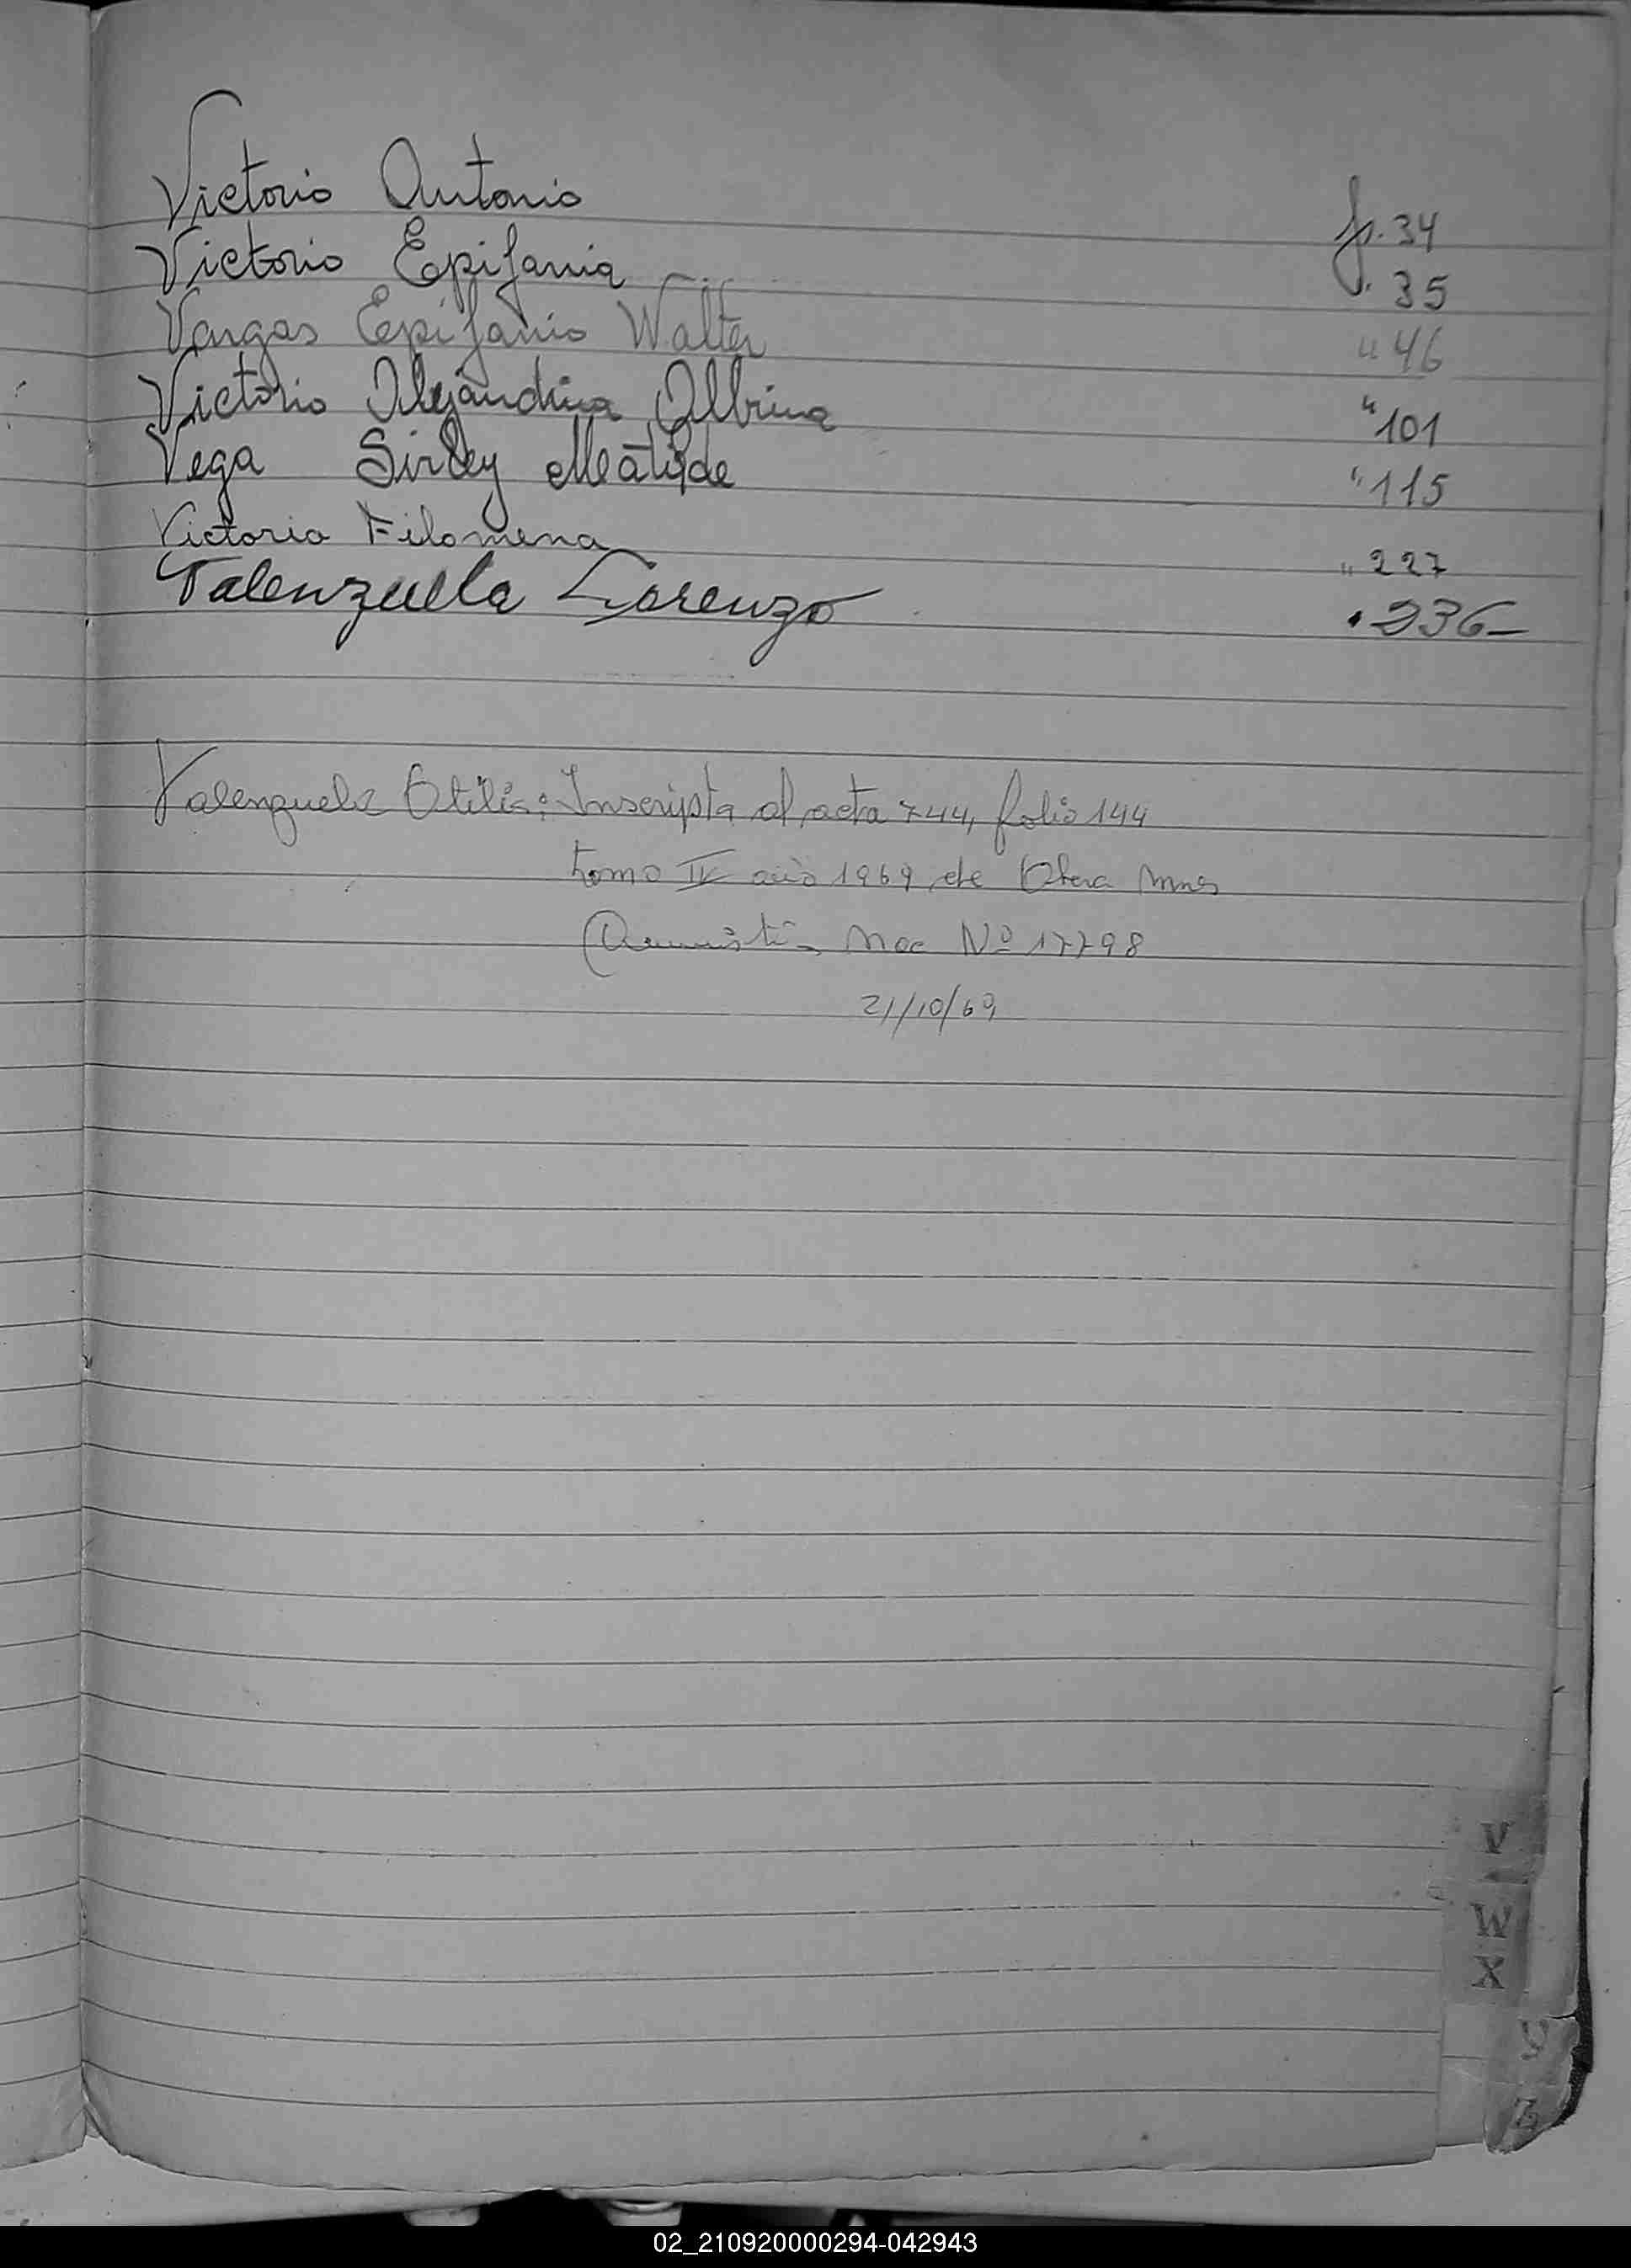 Victorio Antonio f. 34
Victorio Epifania " 35
Vargas Epifanio Walter " 46
Victorio Alejandrina Albina " 101
Vega Sirley Matilde " 115
Victorio Filomena " 227
Valenzuela Lorenzo " 236-
Valenzuela Otilia: Inscripta al acta 744, folio 144
tomo IV año 1969 de Obera Mnes
Amnistia Nac Nº 17798
21/10/69
V
W
X
Y
Z
02_210920000294-042943